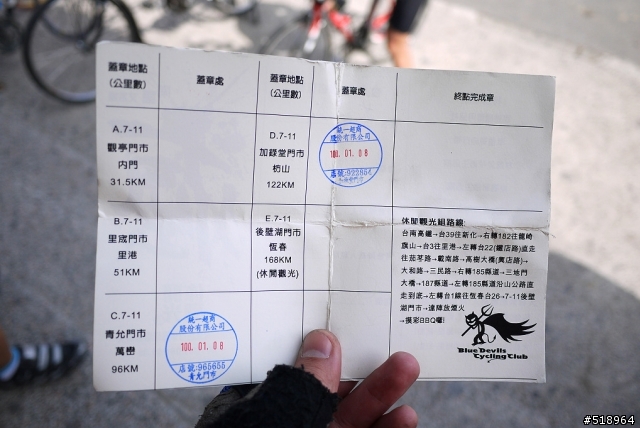 蓋章地點
(公里數)
蓋章處
蓋章地點
(公里數)
蓋章處
終點完成章
A.7-11
觀亭門市
內門
31.5KM
D.7-11
加錄堂門市
枋山
122KM
統一超商
股份有限公司
100. 01. 08
店號:923856
B.7-11
里成門市
里港
51KM
E.7-11
後壁湖門市
恆春
168KM
(休閒觀光)
休閒觀光組路線:
台南高鐵→台39往新化→右轉182往龍崎
旗山→台3往里港→左轉台22(繼店路)直走
往茄苳路→載南路→高樹大橋(廣店路)→
大和路→三民路→右轉185縣道→三地門
大橋→187縣道→左轉185縣道沿山公路直
走到底→左轉台1線往恆春台26→7-11後壁
湖門市→達陣放煙火
→摸彩BBQ囉!
C.7-11
青允門市
萬巒
96KM
統一超商
股份有限公司
100. 01. 08
店號:965655
青允門市
Blue Devils
Cycling Club
#518964